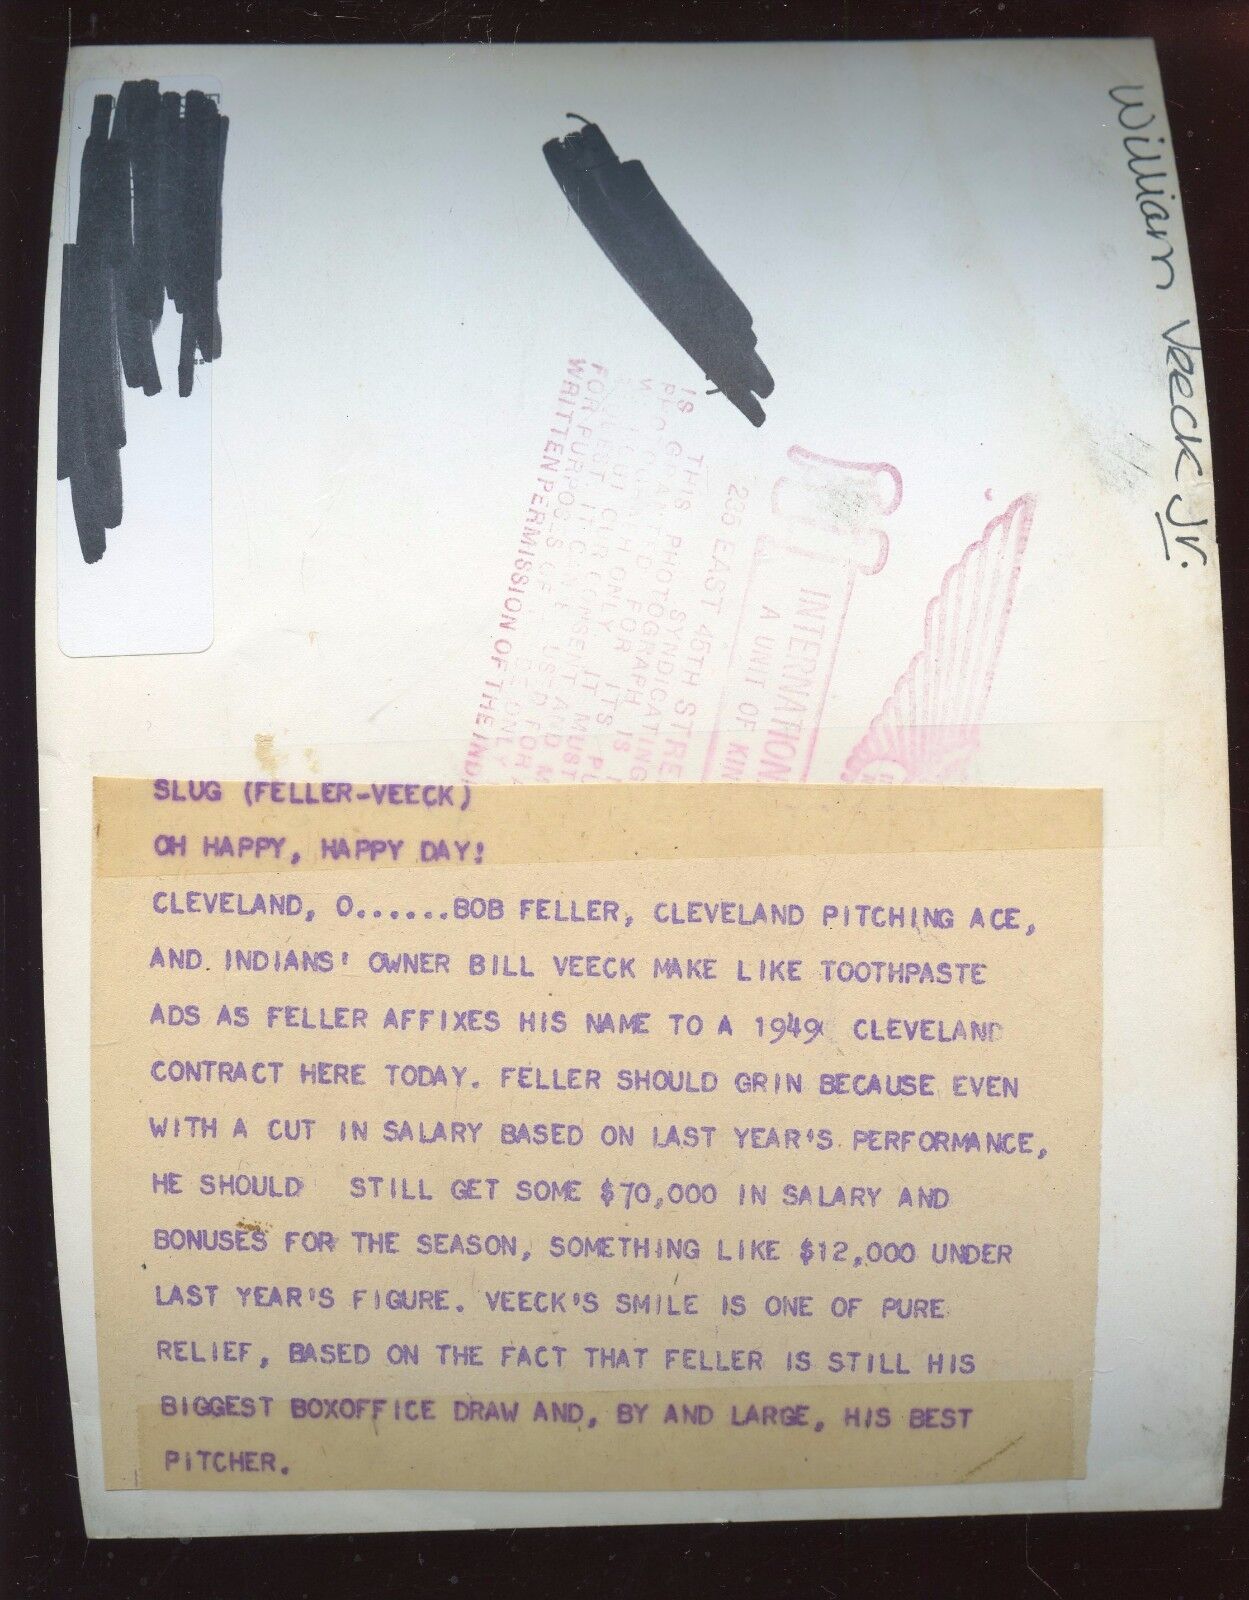 William Veeck Jr.
INTERNATION
A UNIT OF KIN
235 EAST 45TH STRE
THIS PHOTO SYNDICATING
IS GRANTED FOR
PHOTOGRAPH IS
ONLY ITS
CONSENT AND
IT MUST
FOR PURPOSES OF
USED FOR
WRITTEN PERMISSION OF THE IND
SLUG (FELLER-VEECK)
OH HAPPY, HAPPY DAY!
CLEVELAND, O......BOB FELLER, CLEVELAND PITCHING ACE,
AND INDIANS' OWNER BILL VEECK MAKE LIKE TOOTHPASTE
ADS AS FELLER AFFIXES HIS NAME TO A 1949 CLEVELAND
CONTRACT HERE TODAY. FELLER SHOULD GRIN BECAUSE EVEN
WITH A CUT IN SALARY BASED ON LAST YEAR'S PERFORMANCE,
HE SHOULD STILL GET SOME $70,000 IN SALARY AND
BONUSES FOR THE SEASON, SOMETHING LIKE $12,000 UNDER
LAST YEAR'S FIGURE. VEECK'S SMILE IS ONE OF PURE
RELIEF, BASED ON THE FACT THAT FELLER IS STILL HIS
BIGGEST BOXOFFICE DRAW AND, BY AND LARGE, HIS BEST
PITCHER.